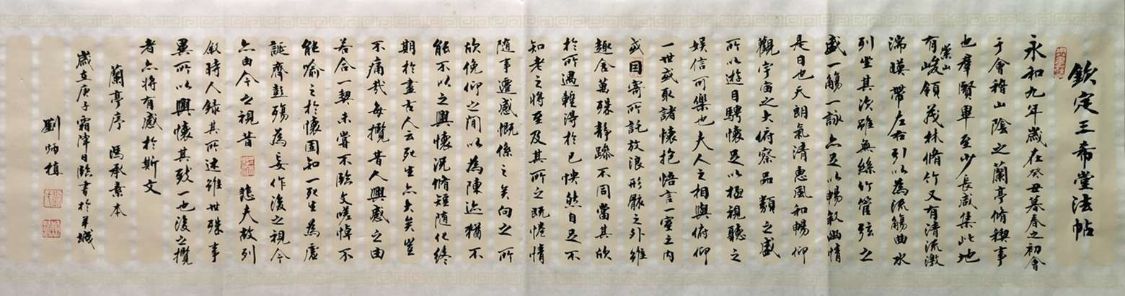 欽定三希堂法帖
永和九年歲在癸丑暮春之初會
于會稽山陰之蘭亭脩稧事
也羣賢畢至少長咸集此地
有崇山峻領茂林脩竹又有清流激
湍暎帶左右引以為流觴曲水
列坐其次雖無絲竹管弦之
盛一觴一詠亦足以暢敘幽情
是日也天朗氣清惠風和暢仰
觀宇宙之大俯察品類之盛
所以遊目騁懷足以極視聽之
娛信可樂也夫人之相與俯仰
一世或取諸懷抱悟言一室之內
或因寄所託放浪形骸之外雖
趣舍萬殊靜躁不同當其欣
於所遇暫得於己怏然自足不
知老之將至及其所之既惓情
隨事遷感慨係之矣向之所
欣俛仰之間以為陳迹猶不
能不以之興懷況脩短隨化終
期於盡古人云死生亦大矣豈
不痛哉每攬昔人興感之由
若合一契未嘗不臨文嗟悼不
能喻之於懷固知一死生為虛
誕齊彭殤為妄作後之視今
亦由今之視昔 悲夫故列
敘時人錄其所述雖世殊事
異所以興懷其致一也後之攬
者亦將有感於斯文
蘭亭序 馮承素本
歲在庚子霜降日臨書於
劉炳植